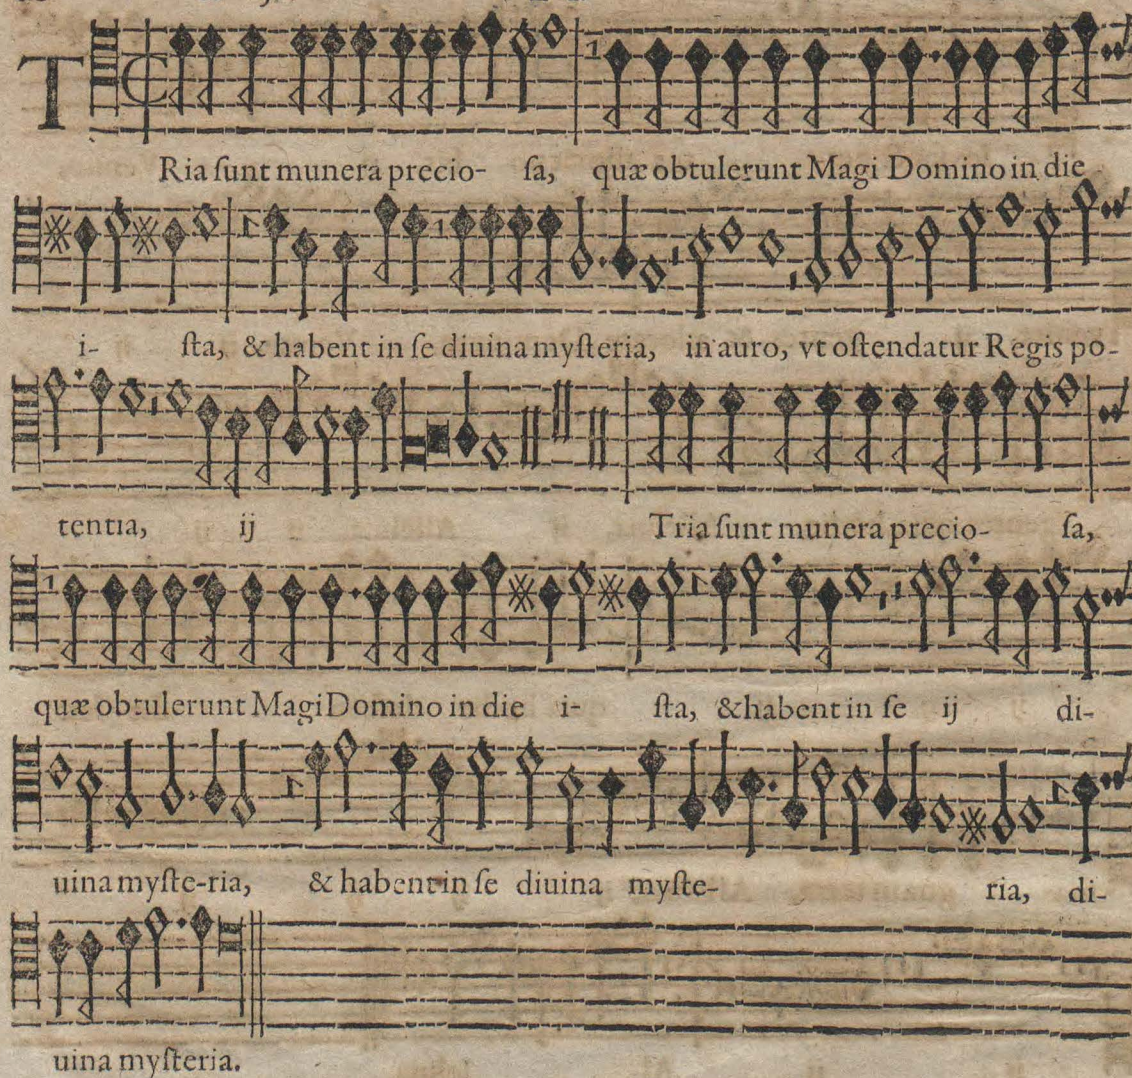 TRia ſunt munera precio- ſa, quæ obtulerunt Magi Domino in die
i- ſta, & habent in ſe diuina myſteria, in auro, vt oſtendatur Regis po-
tentia, ij Tria ſunt munera precio- ſa,
quæ obtulerunt Magi Domino in die i- ſta, & habent in ſe ij di-
uina myſte-ria, & habent in ſe diuina myſte- ria, di-
uina myſteria.